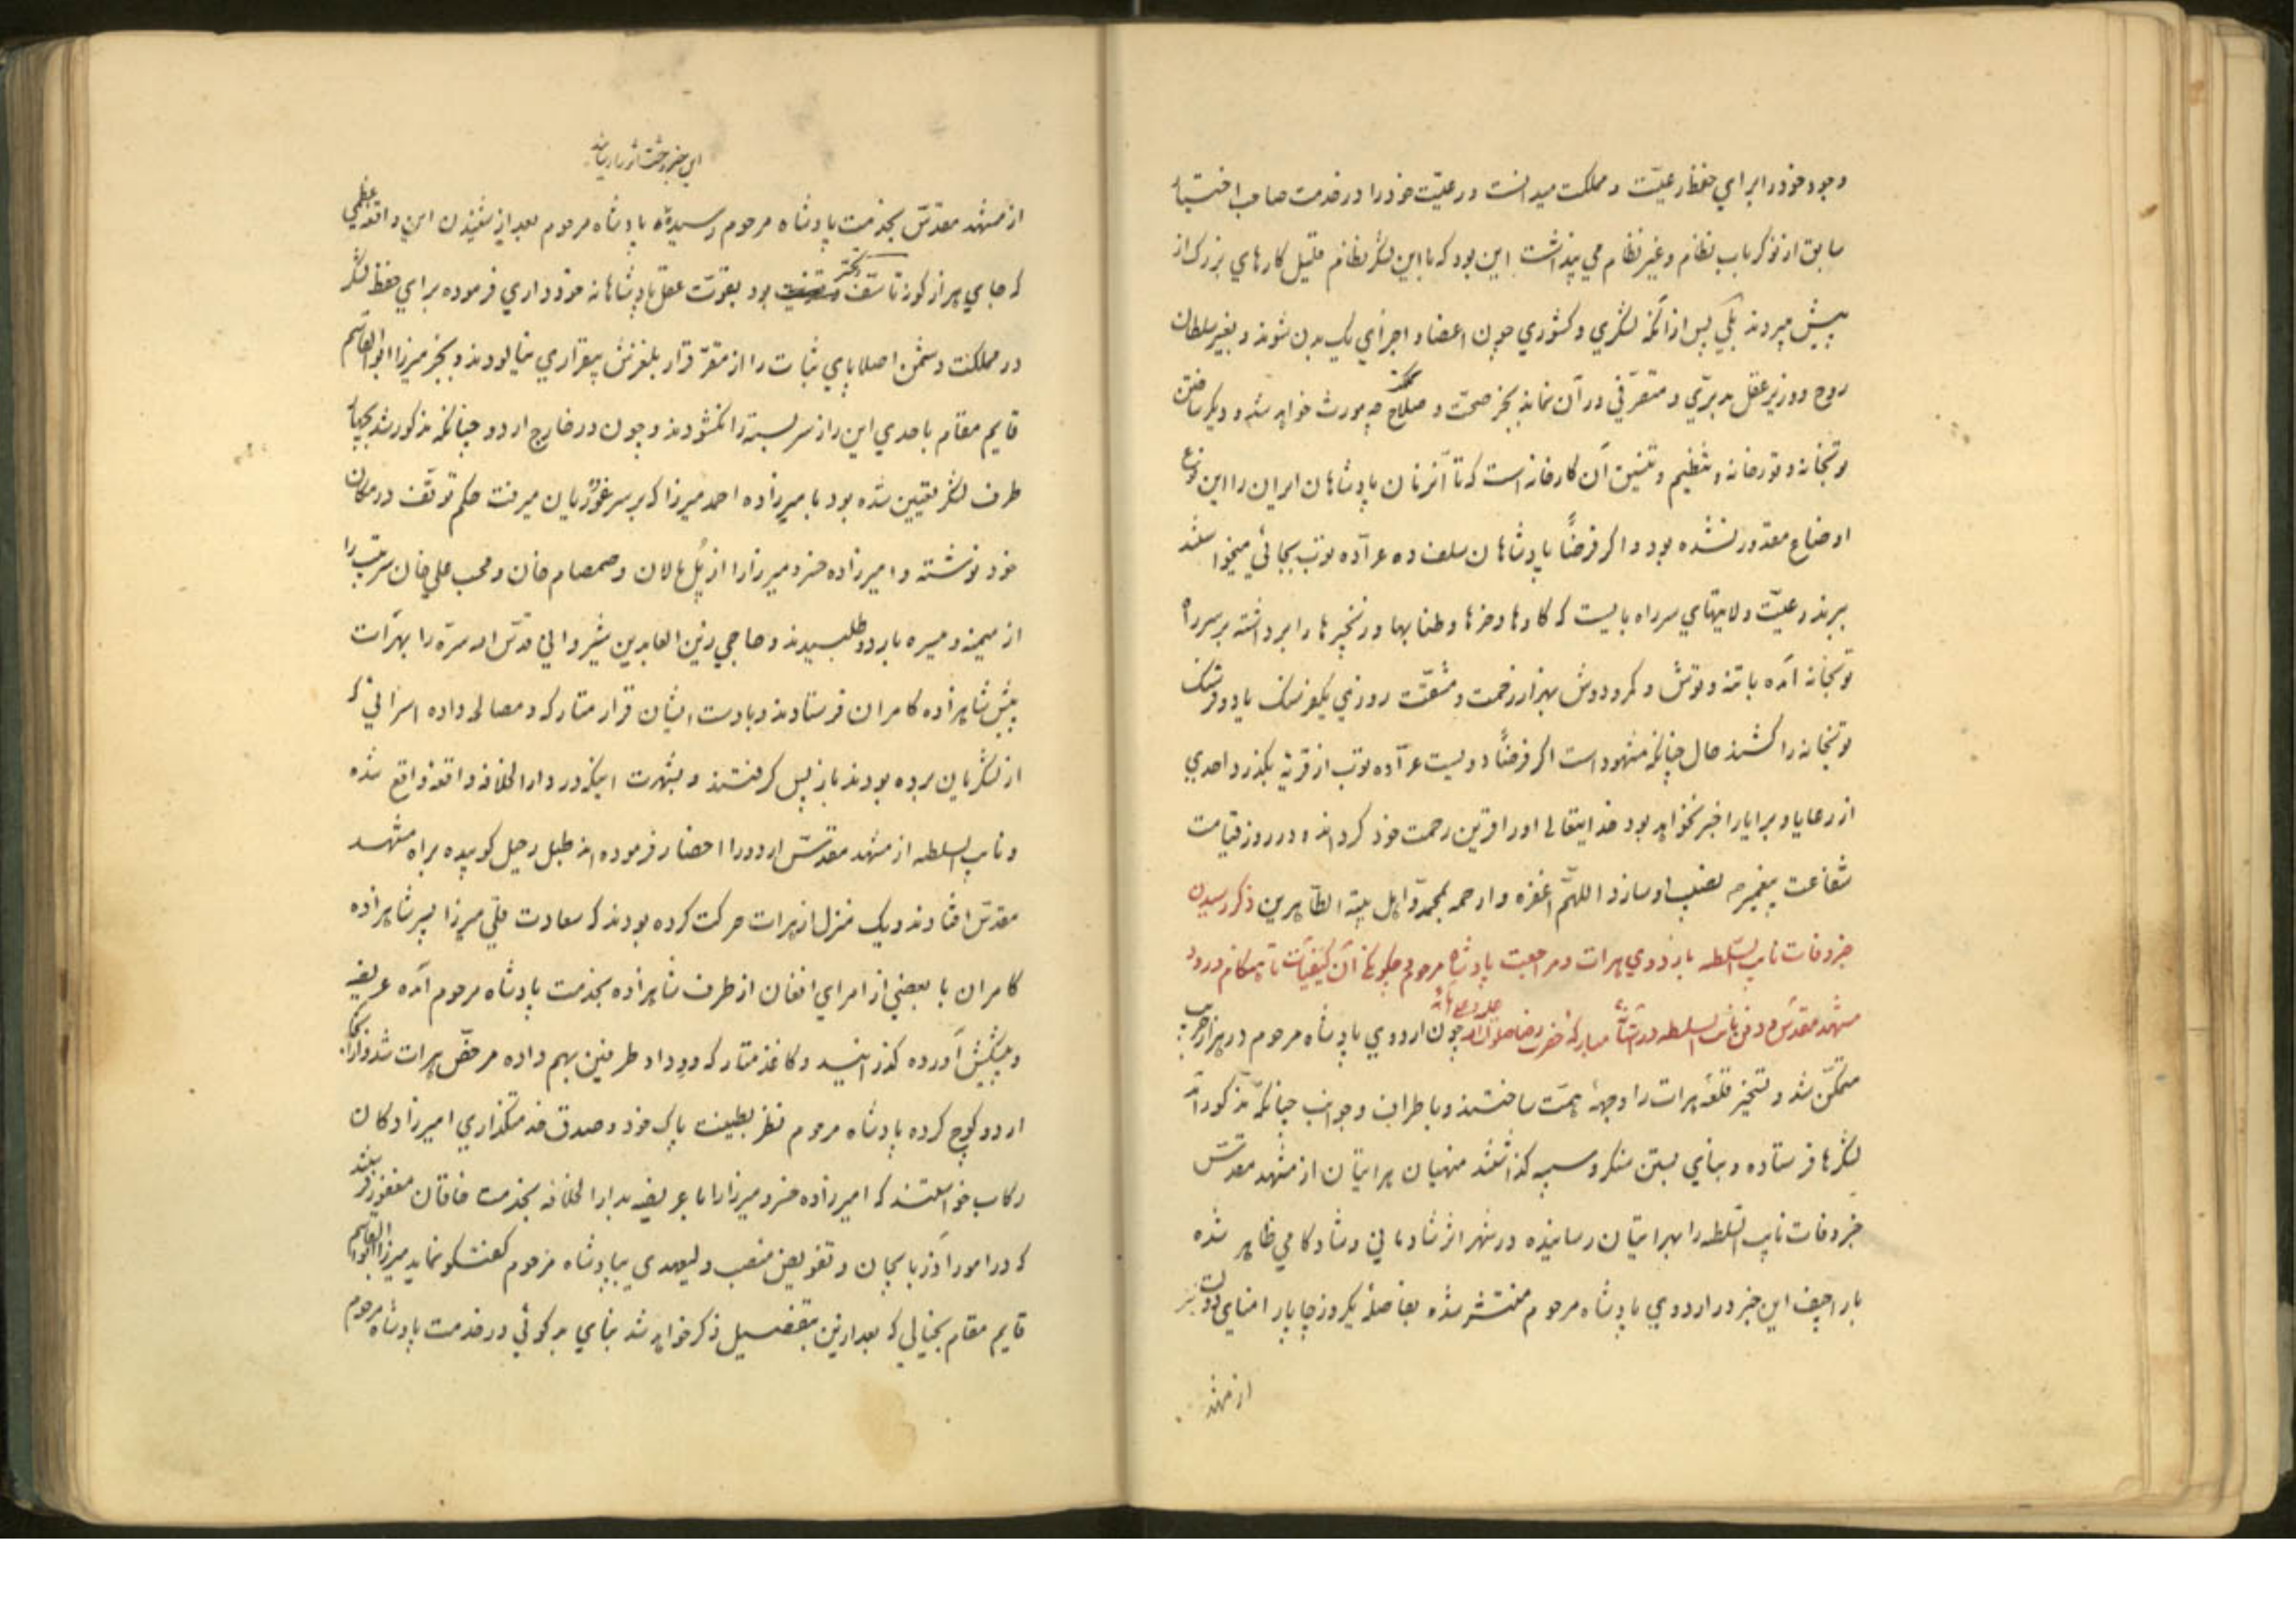 وجود خود را برای حفظ رعیّت و مملکت میدانست و رعیّت خود را در خدمت صاحب اختیار
سابق از نوکر باب نظام و غیر نظام می پنداشت این بود که با این لشکر نظام قلیل کارهای بزرک از
پیش میبردند بلی پس از آنکه لشکری و کشوری چون اعضا و اجزای یک بدن شوند و بغیر سلطان
روح و وزیر عقل مدبّری و متصرّفی در آن نماند بجز صحّت و صلاح چه مورث خواهد شد و دیکر ساختن
توپخانه و قورخانه و تنظیم و تنسیق آن کارخانه است که تا آنزمان پادشاهان ایران را این نوع
اوضاع مقدور نشده بود و اکر فرضاً پادشاهان سلف ده عرّاده توپ بجائی میخواستند
ببرند رعیّت ولایتهای سر راه بایست که کاوها و خرها و طنابها و زنجیرها را برداشته بر سر راه
توپخانه آمده با تنه و توش و کمر و دوش بهزار زحمت و مشقّت روزی یکفرسنک یا دو فرسنک
توپخانه را کشند حال چنانکه مشهود است اکر فرضاً دویست عرّاده توپ از قریه بکذرد احدی
از رعایا و برایا را خبر نخواهد بود خدایتعالی او را قرین رحمت خود کرداند و در روز قیامت
شفاعت پیغمبر نصیب او سازد اللهمّ اغفره و ارحمه بمحمّد و اهل بیته الطّاهرین ذکر رسیدن
خبر وفات نایب السّلطنه باردوی هرات و مراجعت پادشاه مرحوم و چکونکی آن کیفیّات تا هنکام ورود
مشهد مقدّس و دفن نایب السلطنه در آستانهٔ مبارکهٔ حضرت رضا صلوات الله علیه و علی آبائه چون اردوی پادشاه مرحوم در
متمکّن شد و تسخیر قلعهٔ هرات را وجههٔ همّت ساختند و باطراف و جوانب چنانکه مذکور آمد
لشکرها فرستاده و بنای بستن سنکر و سیبه کذاشتند منهیان هراتیان از مشهد مقدّس
خبر وفات نایب السّلطنه را بهراتیان رسانیده در شهر اثر شادمانی و شادکامی ظاهر شده
باراجیف این خبر در اردوی پادشاه مرحوم منتشر شده بفاصلهٔ یکروز چاپار امنای دولت نیز
از مشهد
این خبر وحشت اثر را رساند
از مشهد مقدّس بخدمت پادشاه مرحوم رسیده پادشاه مرحوم بعد از شنیدن این واقعهٔ عظمی
که جای هزار کونه تاسّف و تحسّر بود بقوّت عقل پادشاهانه خودداری فرموده برای حفظ لشکر
در مملکت دشمن اصلا پای ثبات را از مقرّ قرار بلغزش بیقراری نیالودند و بجز میرزا ابوالقاسم
قایم مقام با احدی این راز سر بسته را نکشودند و چون در خارج اردو چنانکه مذکور شد بچهار
طرف لشکر تعیین شده بود با میرزاده احمد میرزا که بر سر غوریان میرفت حکم توقّف در مکان
خود نوشته و امیرزاده خسرو میرزا را از پُل مالان و صمصام خان و محب علی خان سرتیپ را
از میمنه و میسره باردو طلبیدند و حاجی زین العابدین شیروانی قدّس الله سرّه را بهرات
پیش شاهزاده کامران فرستادند و بادست ایشان قرار متارکه و مصالحه داده اسرائی که
از لشکریان برده بودند باز پس کرفتند و بشهرت اینکه در دارالخلافه واقعهٔ واقع شده
و نایب السلطنه از مشهد مقدّس اردو را احضار فرموده اند طبل رحیل کوبیده براه مشهد
مقدّس افتادند و یک منزل از هرات حرکت کرده بودند که سعادت قلی میرزا پسر شاهزاده
کامران با بعضی از امرای افغان از طرف شاهزاده بخدمت پادشاه مرحوم آمده عریضه
و پیشکش آورده کذرانید و کاغذ متارکه و وداد طرفین بهم داده مرخّص هرات شد و از آنجا
اردو کوچ کرده پادشاه مرحوم نظر بطینت پاک خود و صدق خدمتکذاری امیرزادکان
رکاب خواستند که امیرزاده خسرو میرزا را با عریضه بدارالخلافه بخدمت خاقان مغفور فرستند
که در امور آذربایجان و تفویض منصب ولیعهدی بپادشاه مرحوم کفتکو نماید میرزا ابوالقاسم
قایم مقام بخیالی که بعد ازین بتفصیل ذکر خواهد شد بنای بدکوئی در خدمت پادشاه مرحوم